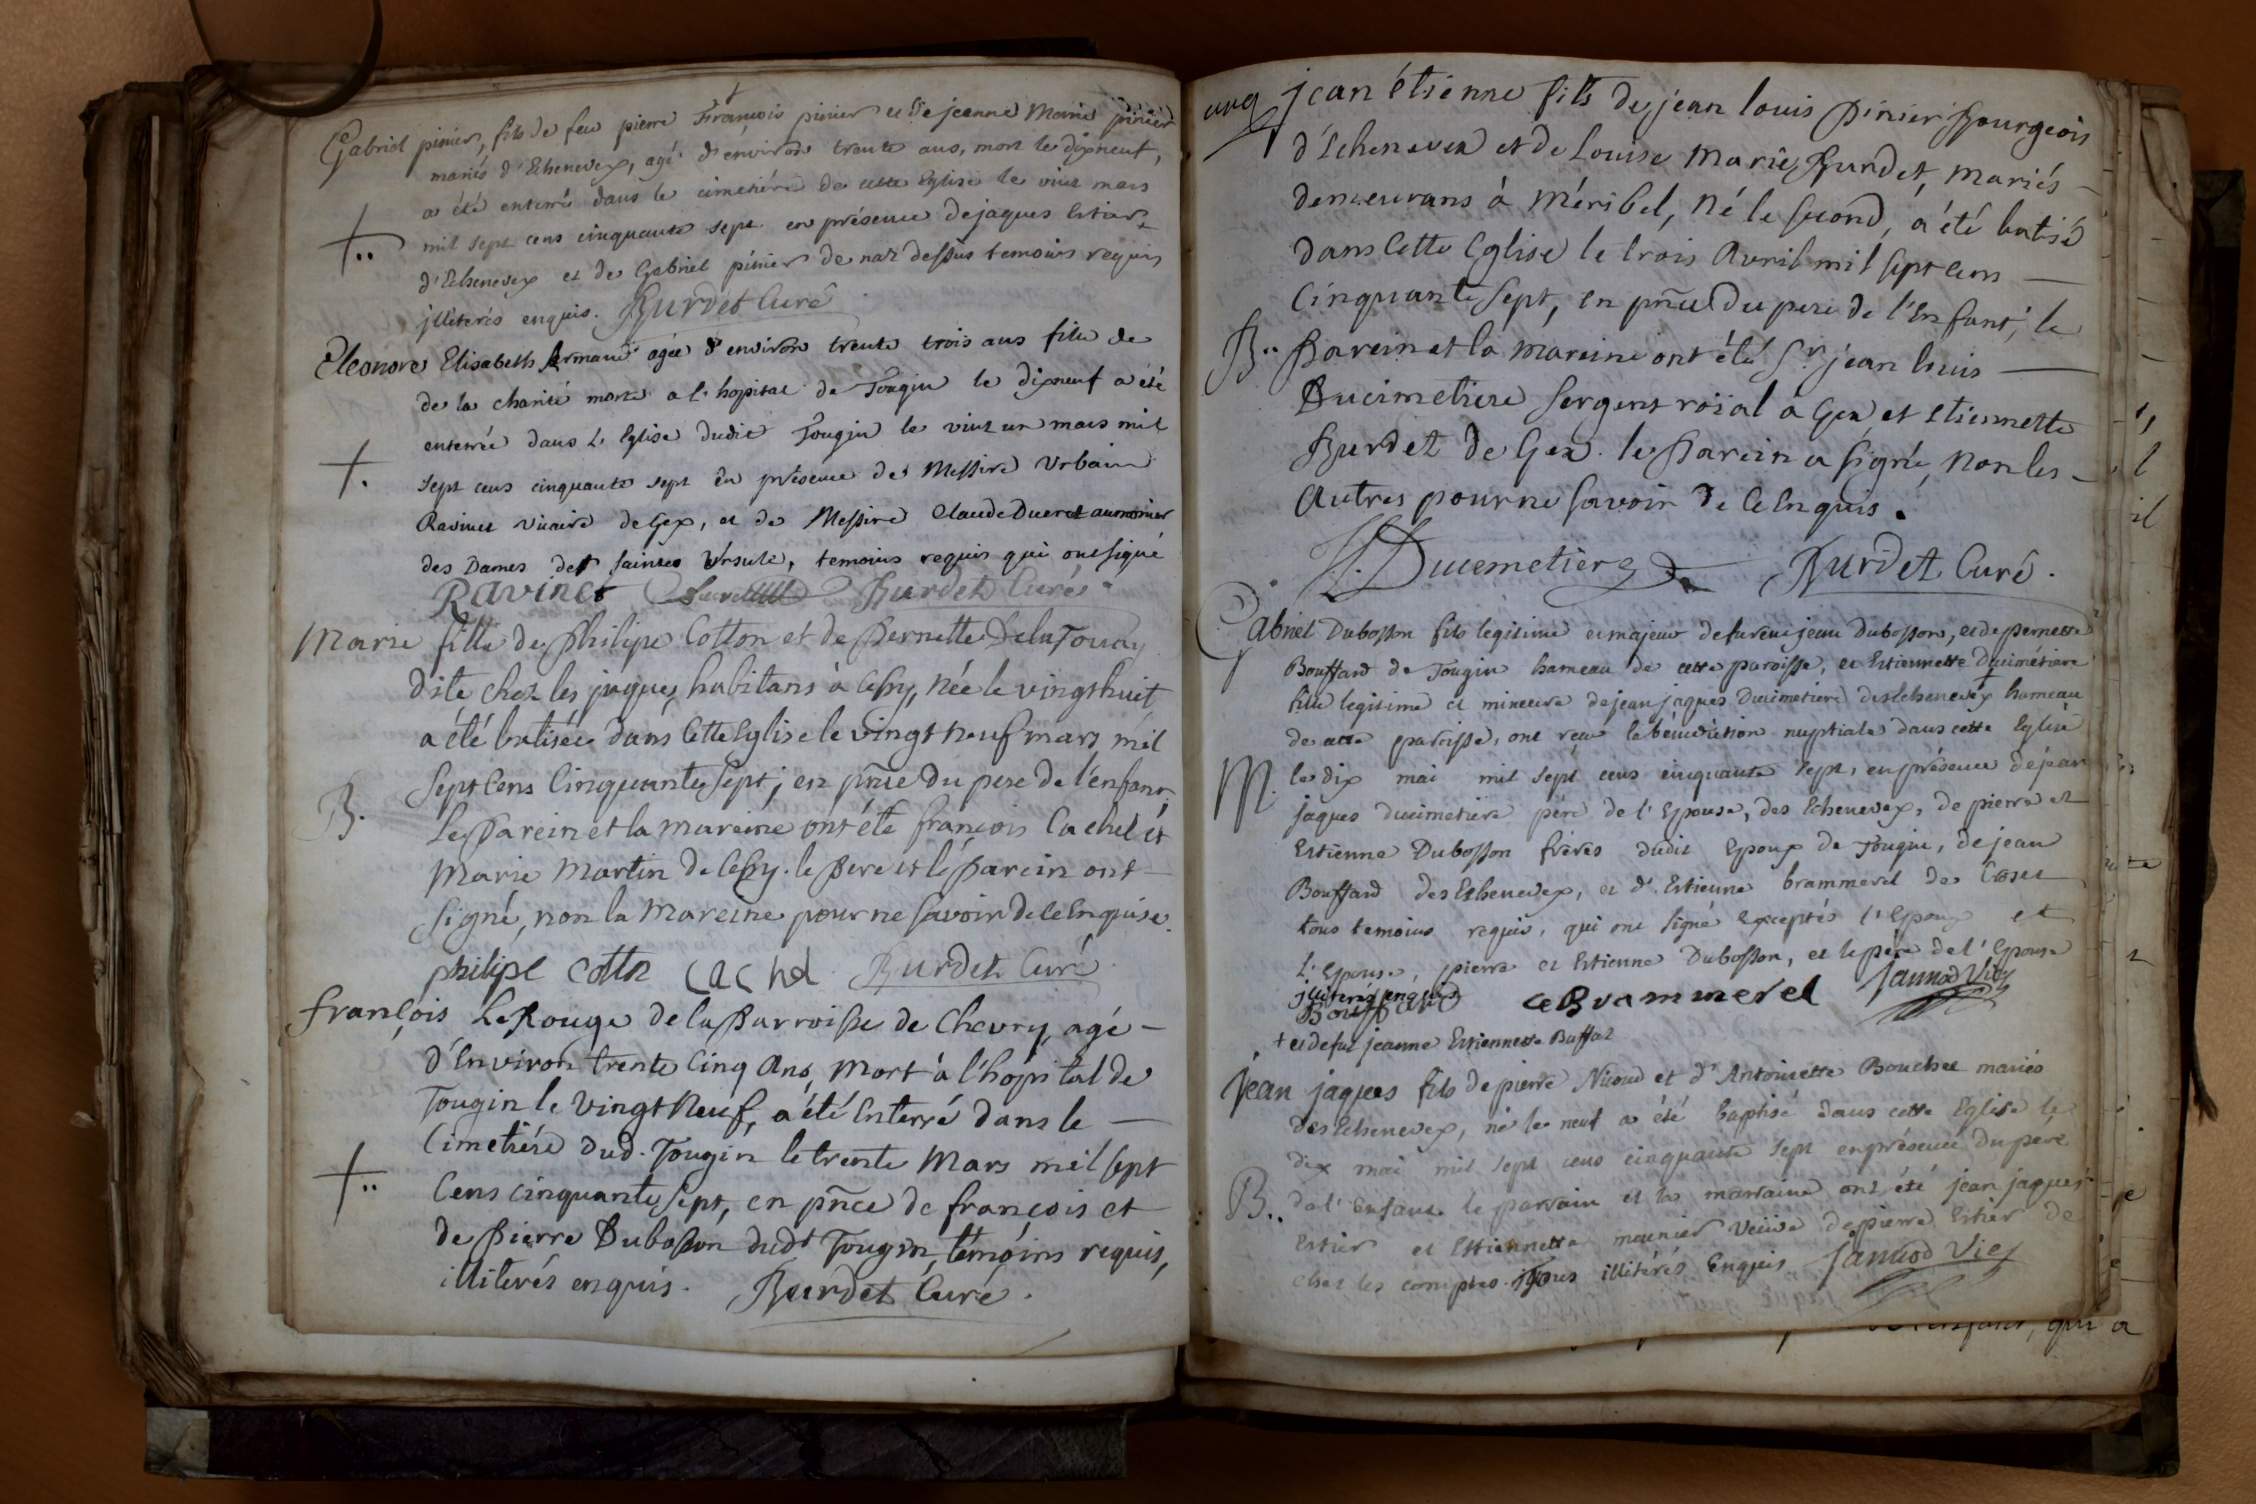 Gabriel pinier, fils de feu pierre François pinier et de jeanne Marie pinier
mariés d'Echenevex, agé d'environ trente ans, mort le dixneuf,
a été enterré dans le cimetiére de cette Eglise le vint mars
mil sept cens cinquante sept en présence de jaques Estier
d'Echenevex et de Gabriel pinier de naz dessus temoins requis
illiterés enquis. Burdet Curé
Eleonore Elisabeth Armand agée d'environ trente trois ans fille de
de la charité morte a l'hopital de Tougin le dixneuf a été
enterrée dans l'Eglise dudit Tougin le vint un mars mil
sept cens cinquante sept en présence de Messire Urbain
Ravinet vicaire de Gex, et de Messire Claude Ducret aumonier
des Dames de sainte Ursule, temoins requis qui ont signé
Ravinet Burdet Curé
Marie fille de Philipe Cotton et de Pernette Delatouay
dite chez les jaques, habitans à Cessy, Née le vingt huit
a été batisée dans Cette Eglise le vingt neuf mars mil
Sept Cens Cinquante Sept, en pñce du pere de l'enfant,
B. Le Parein et la mareine ont été françois Cachet et
Marie Martin de Cessy. le Pere et le Parein ont
Signé, non la Mareine pour ne Savoir de ce Enquise.
philipe cotton cachet Burdet Curé
françois LeRouge de la Parroisse de Chevry, agé
d'Environ trente Cinq Ans, Mort à l'hôpital de
Tougin le vingt Neuf, a été Enterré dans le
Cimetiére dud. Tougin le trente Mars mil sept
Cens cinquante Sept, en pñce de françois et
de Pierre Dubosson dudt Tougin, témoins requis,
illiterés enquis. Burdet Curé.
jean étienne fils de jean louis Pinier Bourgeois
d'Echenevex et de Louise Marie Burdet, Mariés
demeurans à Méribel, Né le Second, a été batisé
dans Cette Eglise le trois Avril mil sept Cens
Cinquante Sept, en pñce du pere de l'Enfant, le
B.. Parein et la mareine ont été Sr. jean louis
Ducimetiere Sergent roïal à Gex et Etiennette
Burdet de Gex. le Parein a signé, Non les
Autres pour ne Savoir de ce Enquis.
Ducemetiere Burdet Curé.
Gabriel Dubosson fils legitime et majeur de jean Dubosson, et de pernette
Bouffard de Tougin hameau de cette paroisse, et Estiennette Ducimétiere
fille legitime et mineure de jean jaques Ducimetiere des Echenevex + hameau
de cette paroisse, ont reçu la bénédiction nuptiale dans cette Eglise
M. le dix mai mil sept cens cinquante sept, en présence de jean
jaques ducimetiere pére de l'Epouse, des Echenevex, de pierre et
Estienne Dubosson fréres dudit Epoux de Tougin, de jean
Bouffard des Echenevex, et d'Estienne brammerel de
tous temoins requis, qui ont signé exceptés l'Epoux et
l'Epouse, pierre et Estienne Dubosson, et le pére de l'Epouse
illiterés enquis Jannod Vic
Bouffard ce Brammerel
+ et de jeanne Estiennette Buffaz
jean jaques fils de pierre Nicoud et d'Antoinette Bouchet mariés
des Echenevex, né le neuf a été baptisé dans cette Eglise le
dix mai mil sept cens cinquante sept en présence du pére
B.. de l'Enfant. le parrain et la marraine ont été jean jaques
Estier et Estiennette meunier veuve de pierre Estier de
chez les comptes. tous illitérés Enquis Jannod Vic